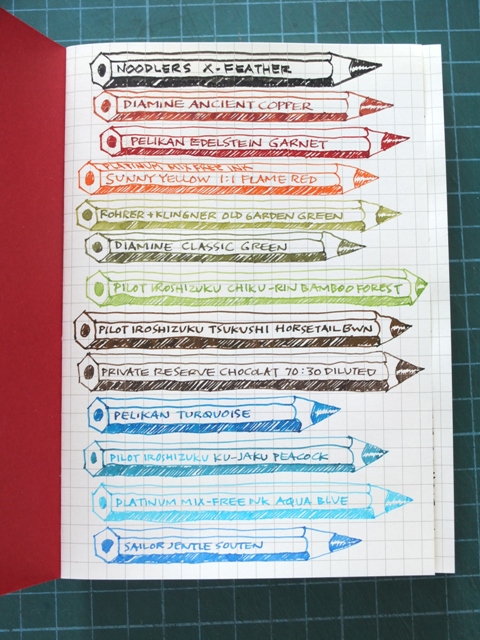 NOODLERS X-FEATHER
DIAMINE ANCIENT COPPER
PELIKAN EDELSTEIN GARNET
PLATINUM MIX FREE INK
SUNNY YELLOW 1:1 FLAME RED
ROHRER + KLINGNER OLD GARDEN GREEN
DIAMINE CLASSIC GREEN
PILOT IROSHIZUKU CHIKU-RIN BAMBOO FOREST
PILOT IROSHIZUKU TSUKUSHI HORSETAIL BWN
PRIVATE RESERVE CHOCOLAT 70:30 DILUTED
PELIKAN TURQUOISE
PILOT IROSHIZUKU KU-JAKU PEACOCK
PLATINUM MIX-FREE INK AQUA BLUE
SAILOR JENTLE SOUTEN